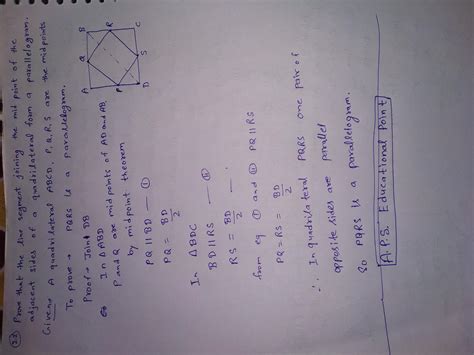 Q.2 Prove that the line segment joining the mid point of the
adjacent sides of a quadrilateral form a parallelogram.
Given → A quadrilateral ABCD, P, Q, R, S are the midpoints
To prove → PQRS is a parallelogram.
Proof → Joind DB
In △ABD
P and Q are midpoints of AD and AB,
by midpoint theorem
PQ || BD — ①
PQ = BD/2
In △BDC
BD || RS — ⑪
RS = BD/2 —
from eq ① and ⑪ PQ || RS
PQ = RS = BD/2
∴ In quadrilateral PQRS one pair of
opposite sides are parallel
So PQRS is a parallelogram.
A.P.S. Educational Point
A
B
C
D
P
Q
R
S